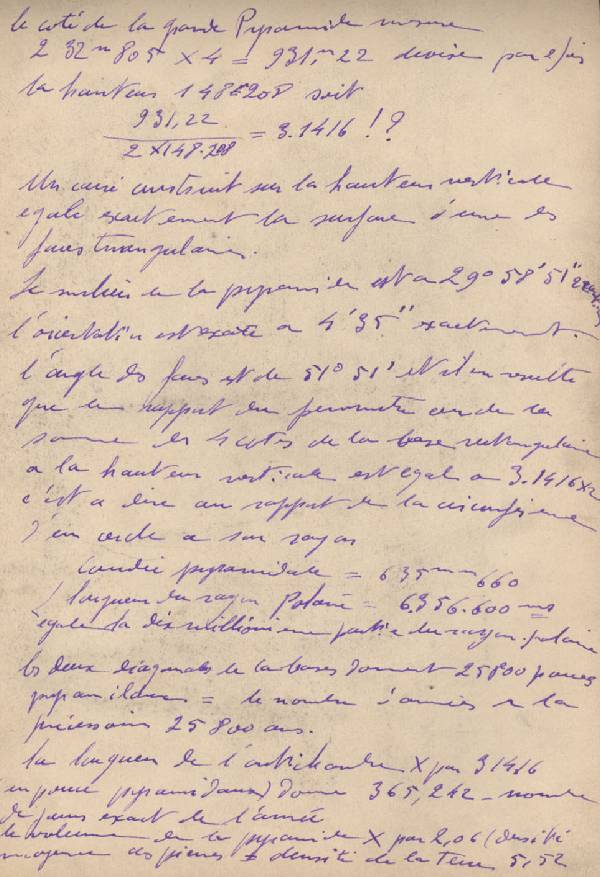 le coté de la grande Pyramide mesure
232m 805 x 4 = 931,m22 divisé par 2 fois
la hauteur 148.208 soit
931,22
2 x 148.208
= 3.1416 !?
Un carré construit sur la hauteur verticale
egale exactement la surface d'une des
faces triangulaires.
Le milieu de la pyramide est a 29° 58' 51"
l'orientation est exacte a 4' 35" exactement.
l'angle des faces est de 51° 51' et il en resulte
que le rapport du perimetre ou de la
somme des 4 cotés de la base rectangulaire
a la hauteur verticale est egal a 3.1416x2
c'est a dire au rapport de la circonference
d'un cercle a son rayon
Coudée pyramidale = 635mm 660
longueur du rayon Polaire = 6.356.600 ms
égale la dix millionieme partie du rayon polaire
les deux diagonales de la bases donnent 25800 pouces
pyramidaux = le nombre d'années de la
précession 25 800 ans.
la longueur de l'antichambre X par 31416
en pouce pyramidaux) donne 365,242 - nombre
de jours exact de l'année
le volume de la pyramide X par 2,06 (densité
moyenne des pierres = densité de la Terre 5,52